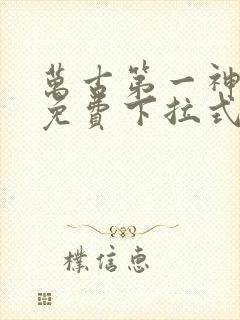 萬古第一神
免費下拉式
樸信惠